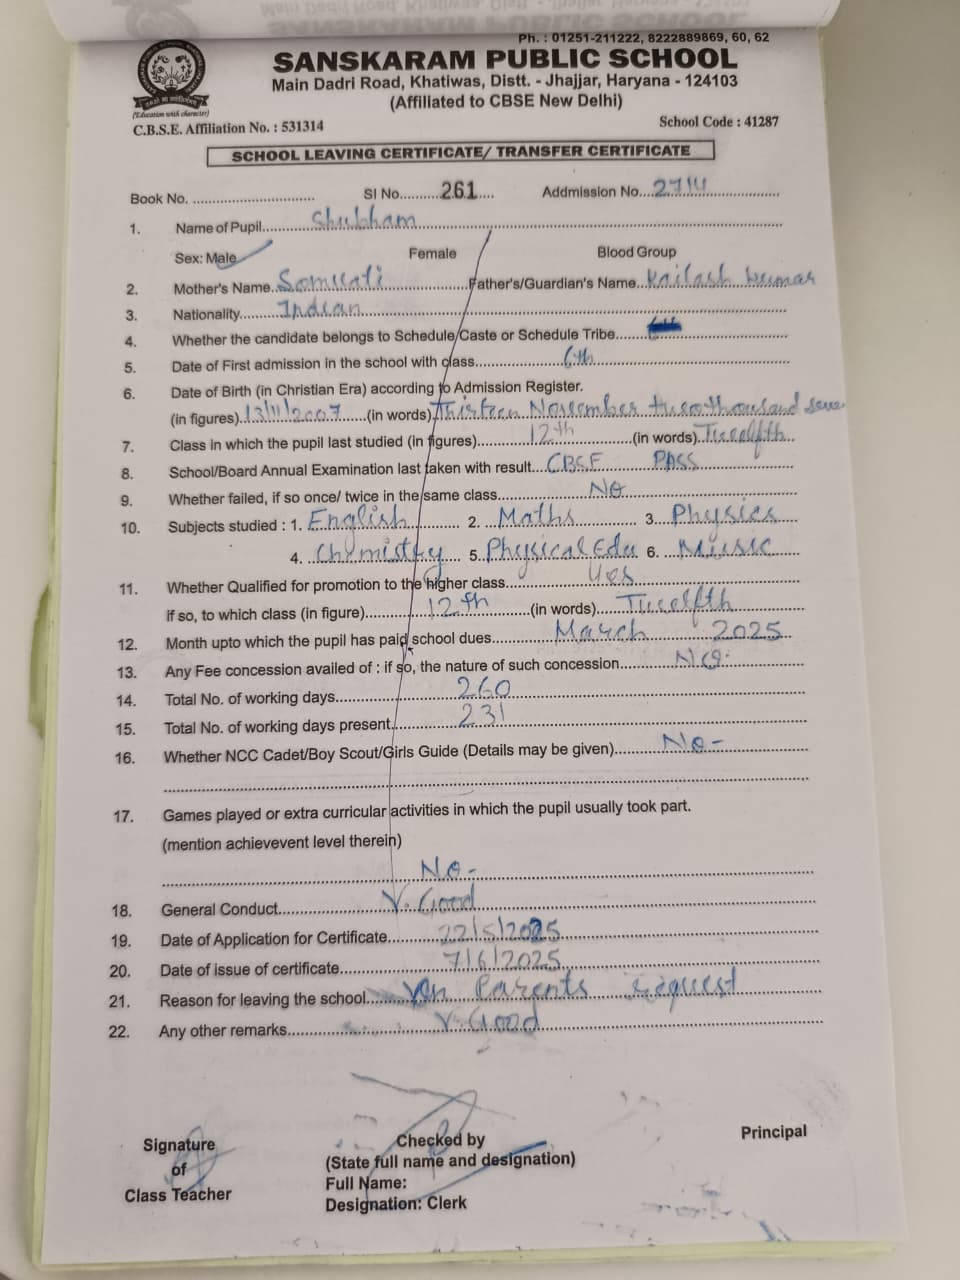 Ph. : 01251-211222, 8222889869, 60, 62
SANSKARAM PUBLIC SCHOOL
Main Dadri Road, Khatiwas, Distt. - Jhajjar, Haryana - 124103
(Affiliated to CBSE New Delhi)
(Education with character)
C.B.S.E. Affiliation No. : 531314 School Code : 41287
SCHOOL LEAVING CERTIFICATE/ TRANSFER CERTIFICATE
Book No. .............................. Sl No..........261.... Addmission No....2714..................
1. Name of Pupil............Shubham..........................................
Sex: Male Female Blood Group
2. Mother's Name..Somwati.................Father's/Guardian's Name..Kailash kumar
3. Nationality.........Indian..........................................
4. Whether the candidate belongs to Schedule/Caste or Schedule Tribe..............................
5. Date of First admission in the school with class....................6th..............................
6. Date of Birth (in Christian Era) according to Admission Register.
(in figures).13/11/2007......(in words).Thirteen November twothousand seve
7. Class in which the pupil last studied (in figures)............12th............(in words)..Twelfth..
8. School/Board Annual Examination last taken with result...CBSE PASS..................
9. Whether failed, if so once/ twice in the same class....................NO..............................
10. Subjects studied : 1. English........... 2. ..Maths............. 3...Physics....
4. ..Chymistry.... 5..Physical Edu 6. ..Music.....
11. Whether Qualified for promotion to the higher class..................yes..............................
If so, to which class (in figure)..............12th..........(in words)....Twelfth.............
12. Month upto which the pupil has paid school dues............March 2025...
13. Any Fee concession availed of : if so, the nature of such concession.............No................
14. Total No. of working days.........................260..............................
15. Total No. of working days present..............231..............................
16. Whether NCC Cadet/Boy Scout/Girls Guide (Details may be given)..........No-..................
17. Games played or extra curricular activities in which the pupil usually took part.
(mention achievevent level therein)
No-
18. General Conduct....................V. Good..............................
19. Date of Application for Certificate...........22/5/2025..............................
20. Date of issue of certificate....................7/6/2025..............................
21. Reason for leaving the school........On Parents request.............
22. Any other remarks..............................V. Good..............................
Signature
of
Class Teacher
Checked by
(State full name and designation)
Full Name:
Designation: Clerk
Principal